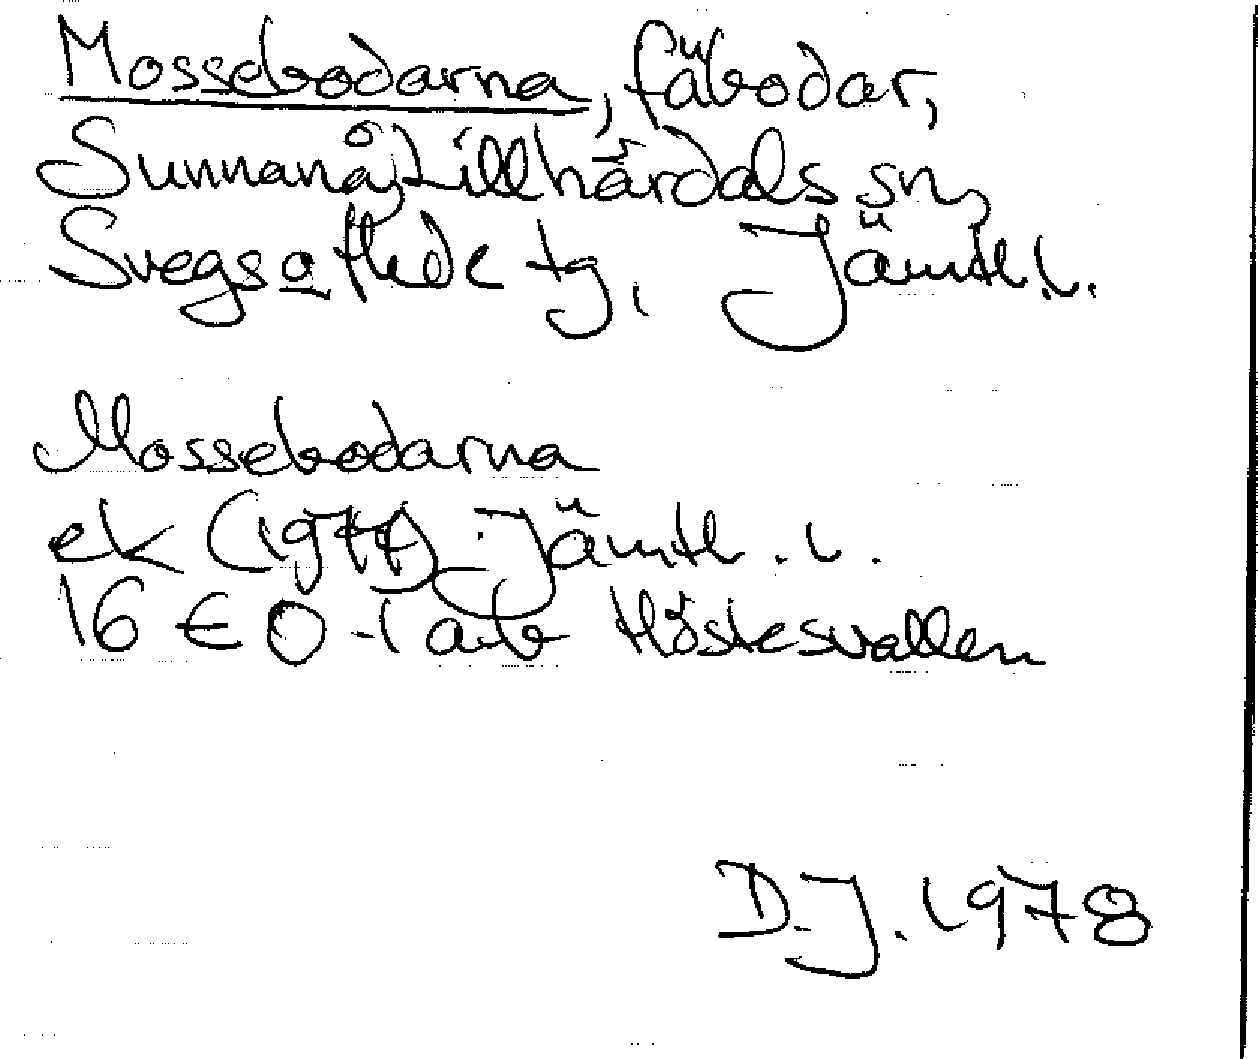 Mossebodarna, fäbodar,
Sunnanå, Lillhärdals sn,
Svegs o Hede tg, Jämtl. l.
Mossebodarna
ek (1977) Jämtl. l.
16 E 0-1 a-b Höstesvallen
D.J. 1978